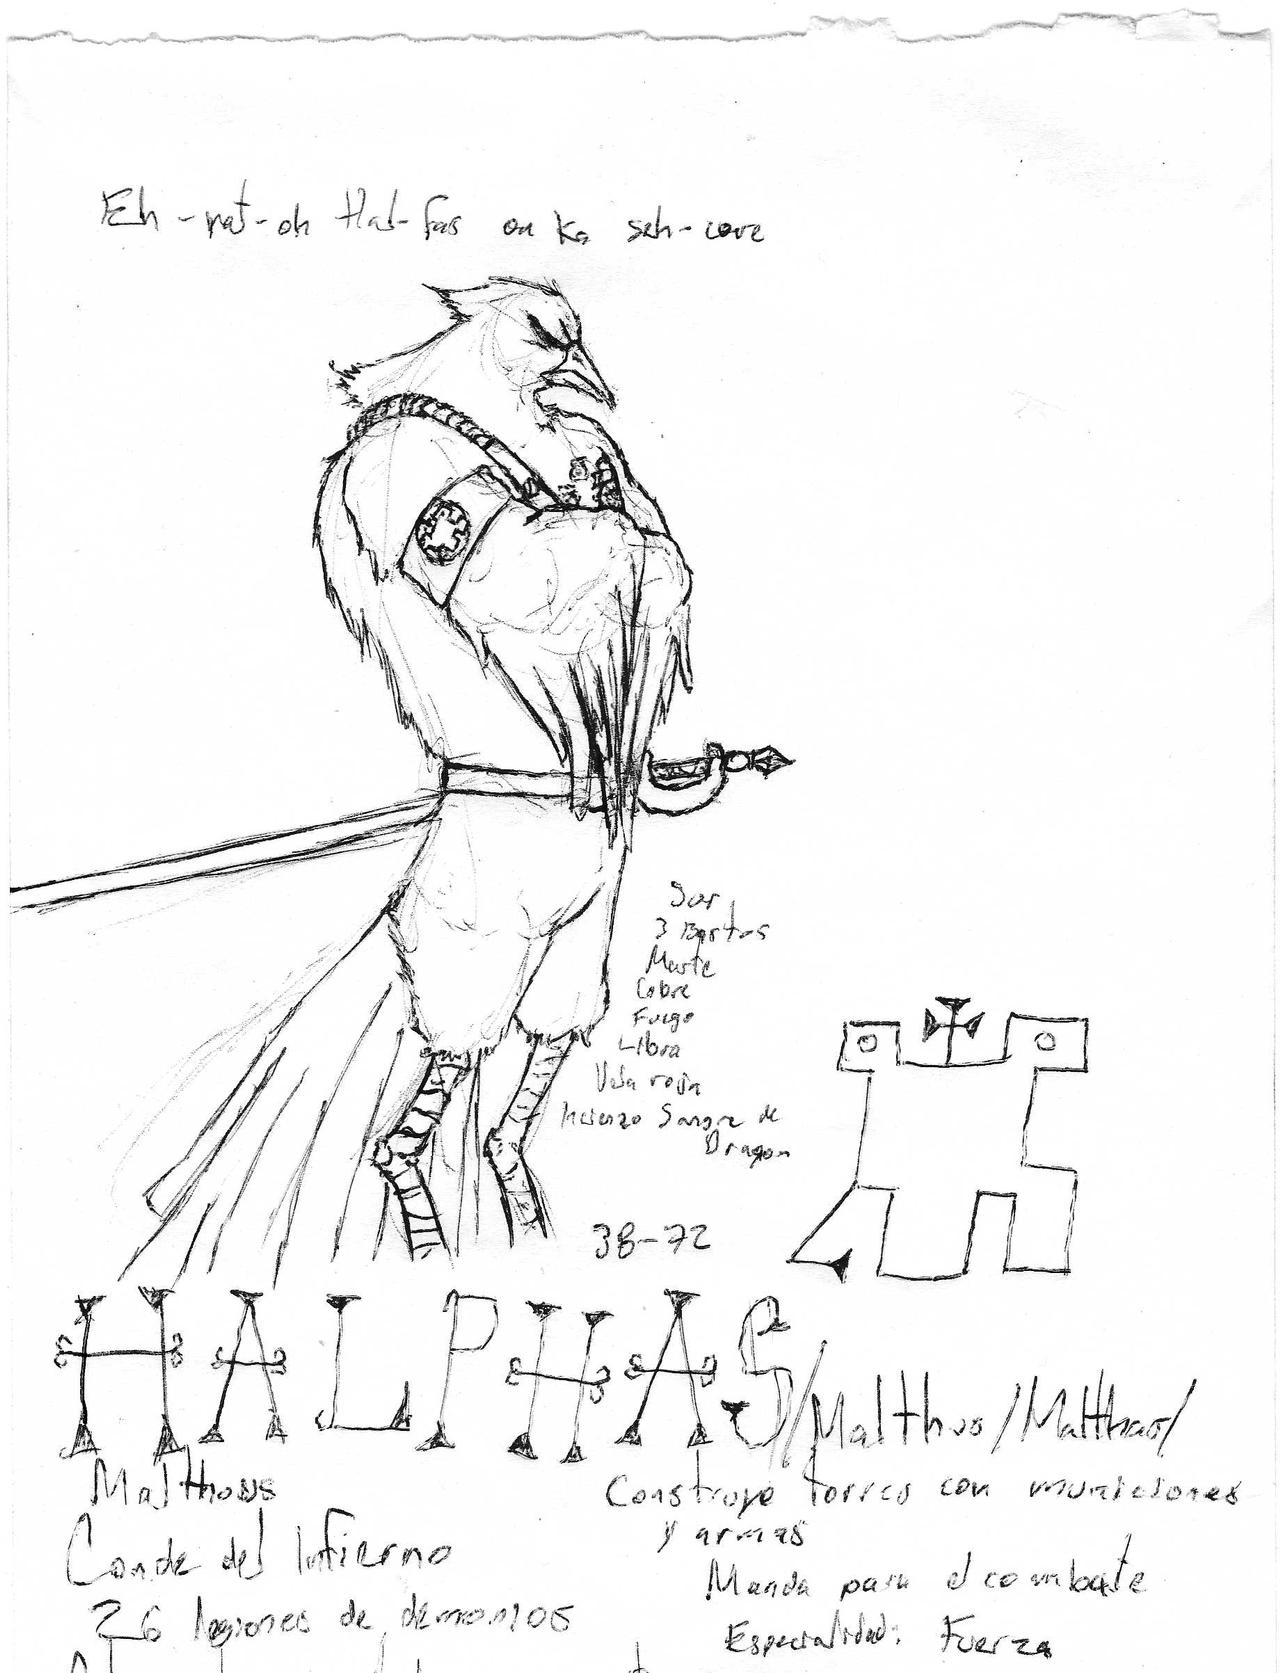 Eh-nat-oh Hal-fas on ka seh-core
Sur
3 Bastos
Marte
Cobre
Fuego
Libra
Vela roja
Incienzo Sangre de
Dragon
38-72
HALPHAS/Malthus/Malthas/
Malthous
Construye torres con municiones
y armas
Conde del Infierno
Manda para el combate
26 legiones de demonios
Especialidad: Fuerza